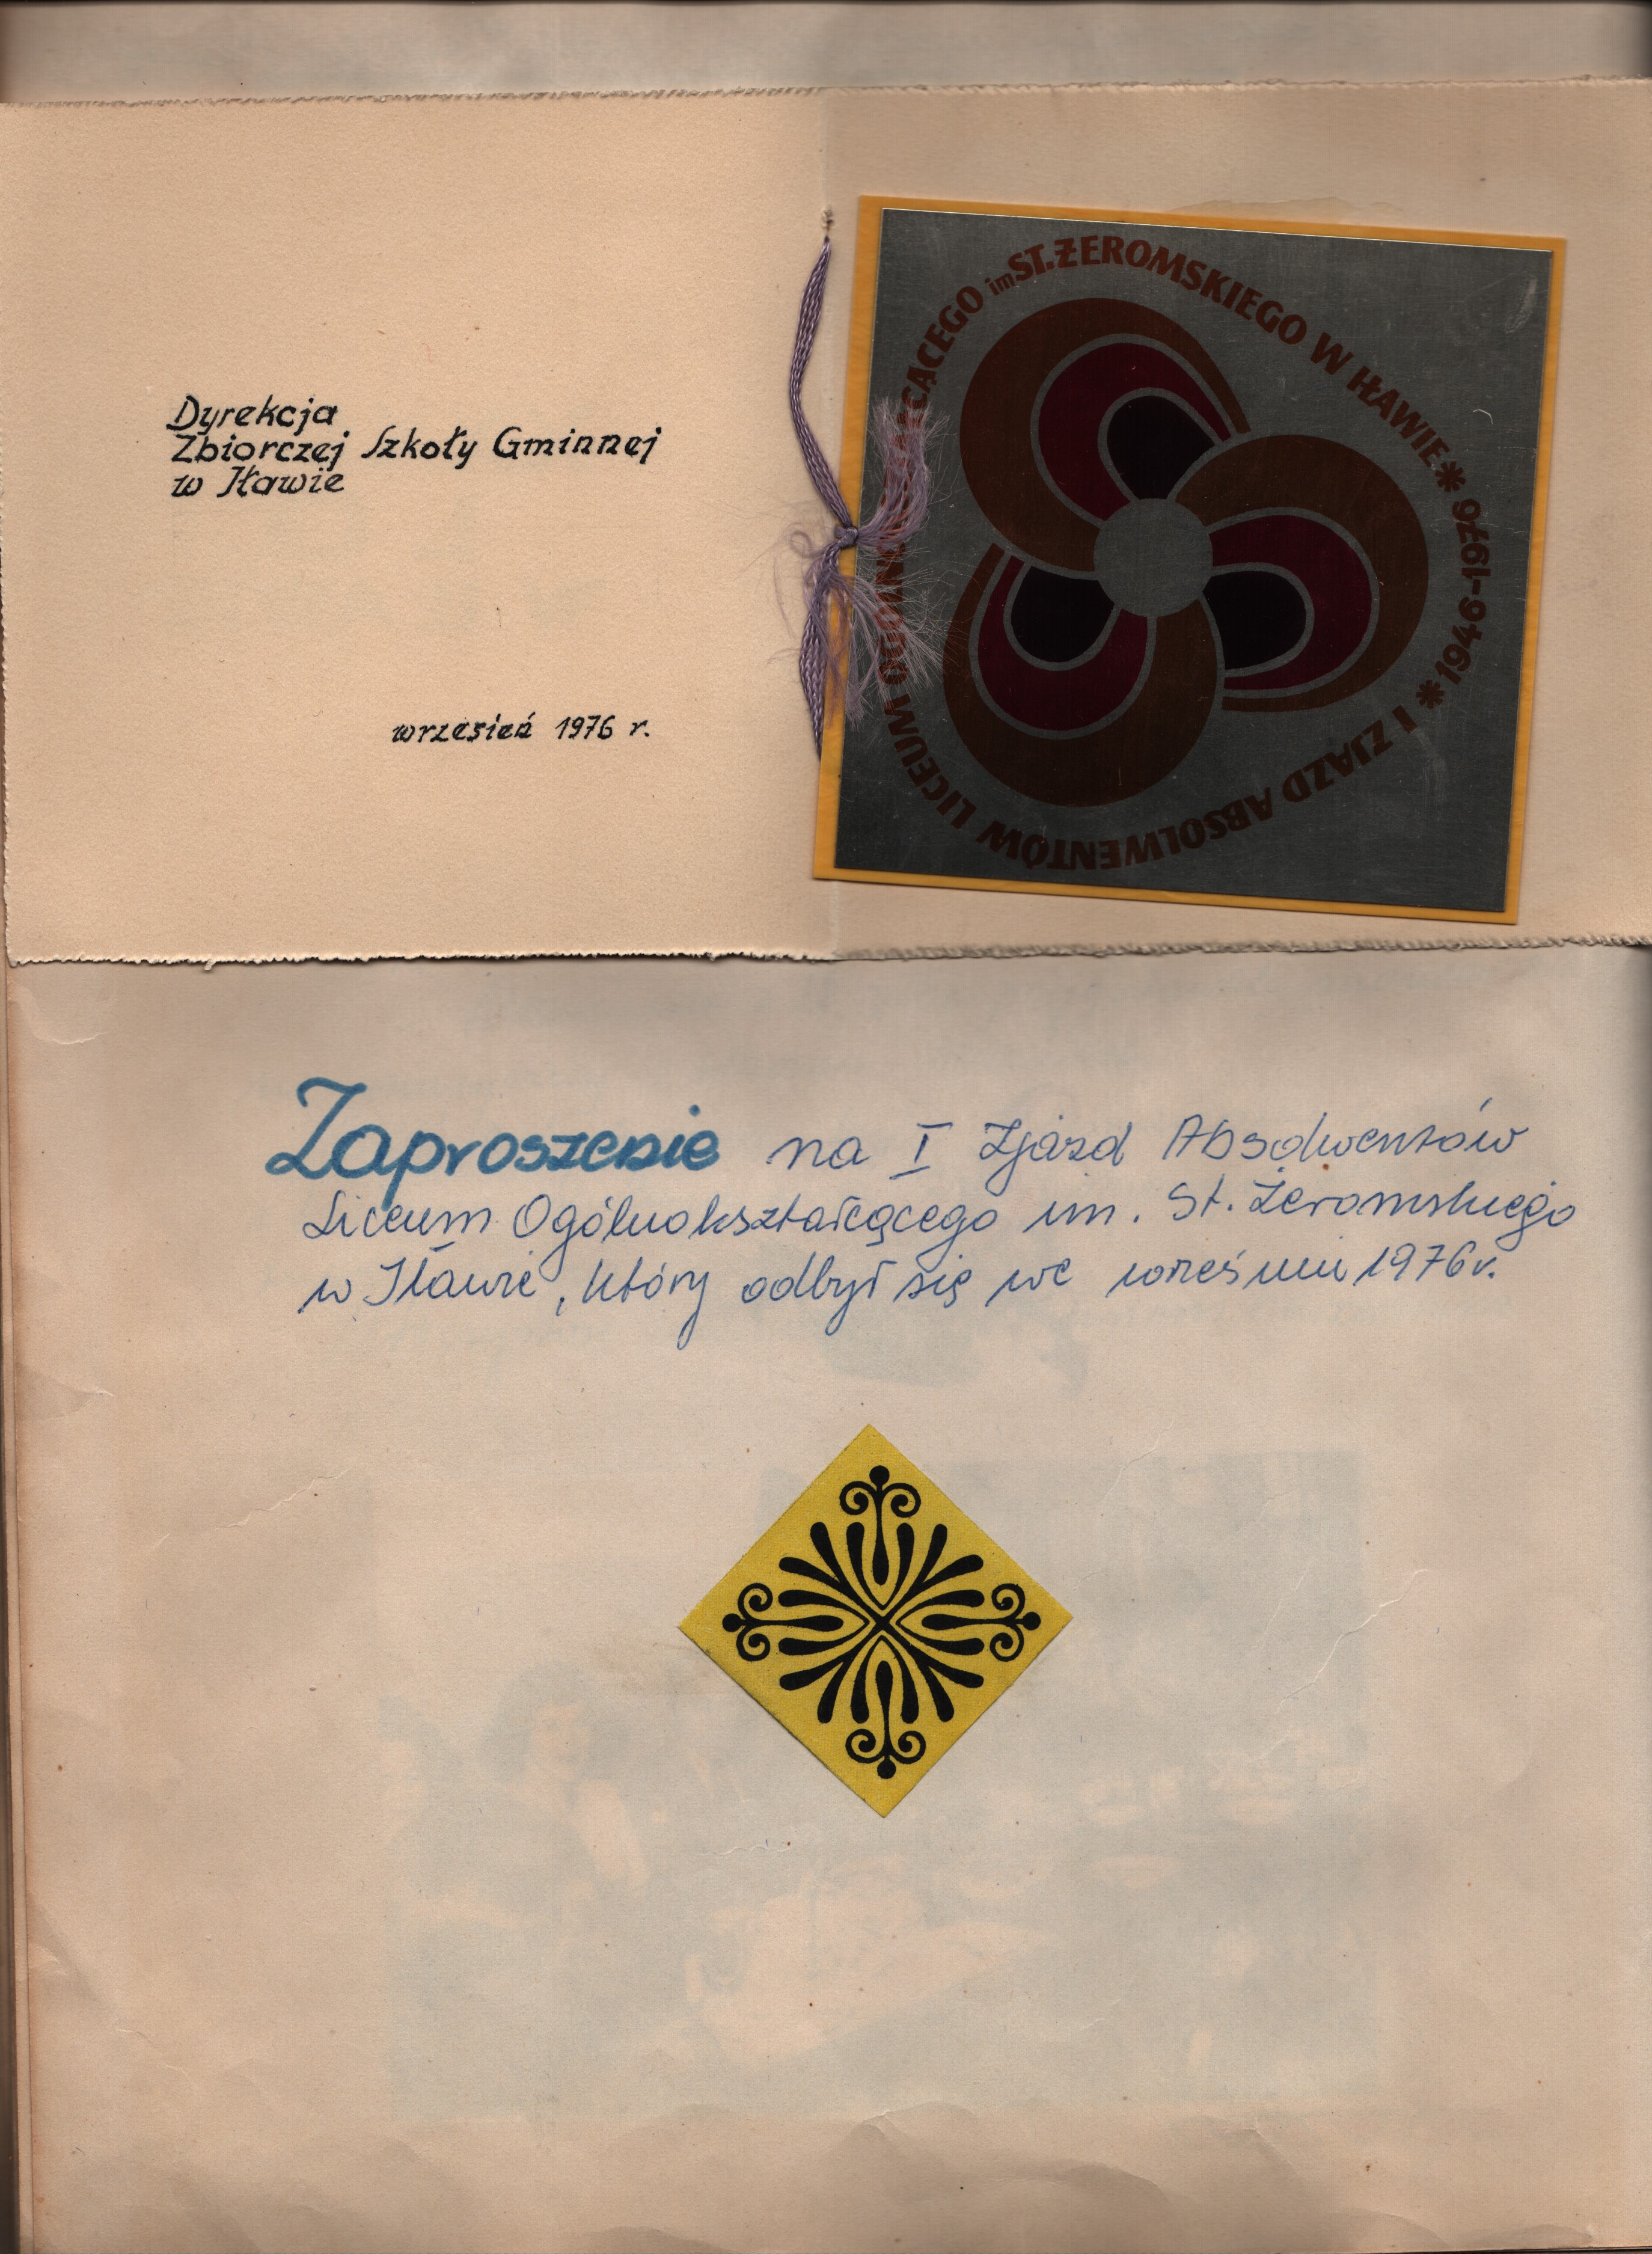 Dyrekcja
Zbiorczej Szkoły Gminnej
w Iławie
wrzesień 1976 r.
I ZJAZD ABSOLWENTÓW LICEUM im ST. ŻEROMSKIEGO W IŁAWIE * 1946-1976 *
Zaproszenie na I Zjazd Absolwentów
Liceum Ogólnokształcącego im. St. Żeromskiego
w Iławie, który odbył się we wrześniu 1976 r.